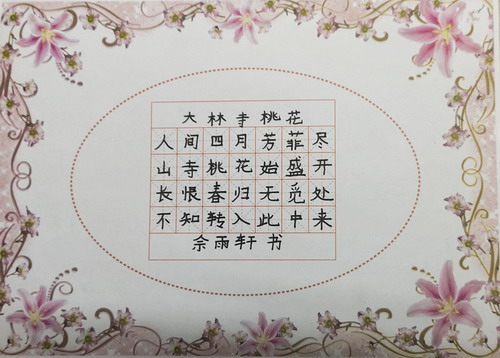 大林寺桃花
人间四月芳菲尽
山寺桃花始盛开
长恨春归无觅处
不知转入此中来
余雨轩书